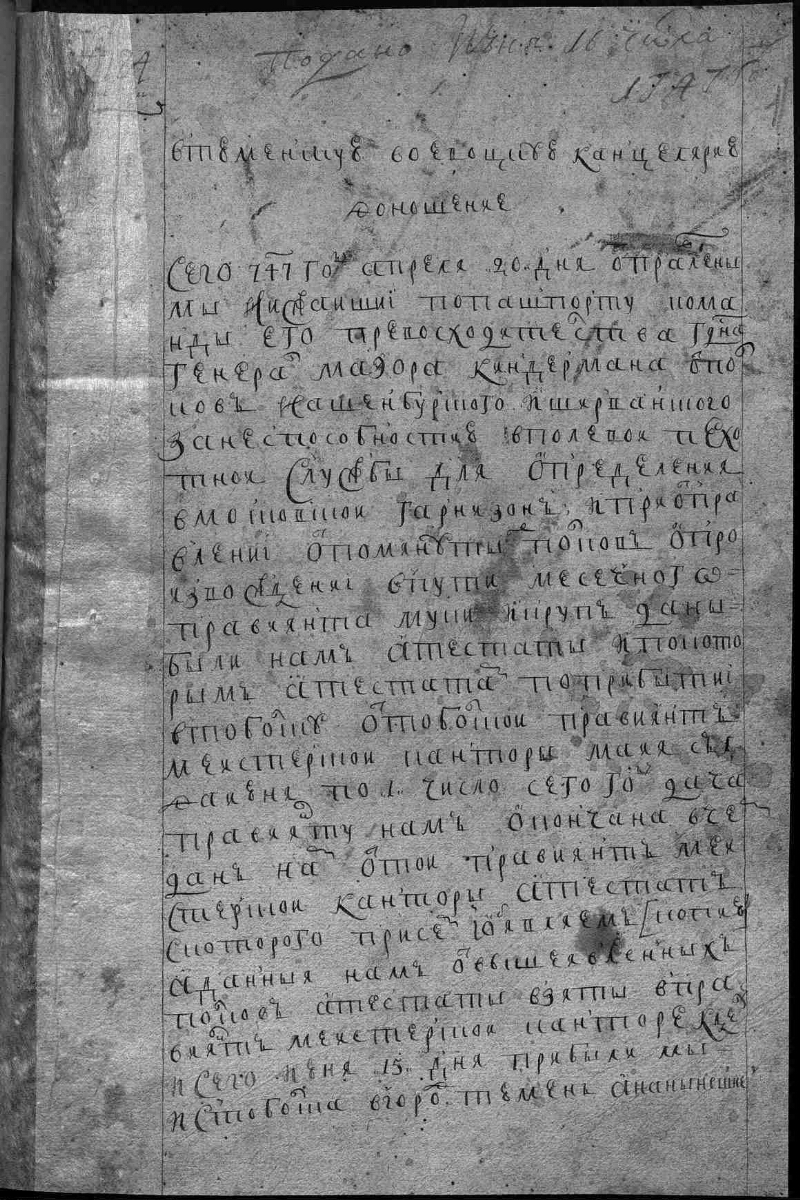 Подано Июня 16 числа
1747 го
втюменскую воевоцкую канцелярию
доношение
Сего 747 году апреля 20 дня отправлены
мы нижайшиі попашпорту кома
нды его превосходителства гдна
Генерал маэора киндермана ис по
ковъ нашенбургского и ширванского
занеспособностию вполевои пехо
тнои Службы для определения
в гарнизонъ и приотпра
влениі отпомянутыхъ полковъ опро
изво жденіі впути месечного
правиянта муки икрупъ даны
были намъ атестаты ипокото
рымъ атестатамъ поприбытиі
втоболскъ отоболскои правиянтъ
меистерскои канторы маия съ
дачею по 1 число сего году дача
правиянту намъ окончана вче
данъ намъ оттои правиянтъ меи
стерскои канторы атестатъ
скоторого присемъ обявляемъ копию
аданныя намъ отвышеявленныхъ
полковъ атестаты взяты вправи
виянтъ меистерскои канторе
исего июня 15 дня прибыли мы
истоболска вгород тюмень ананынешнеи